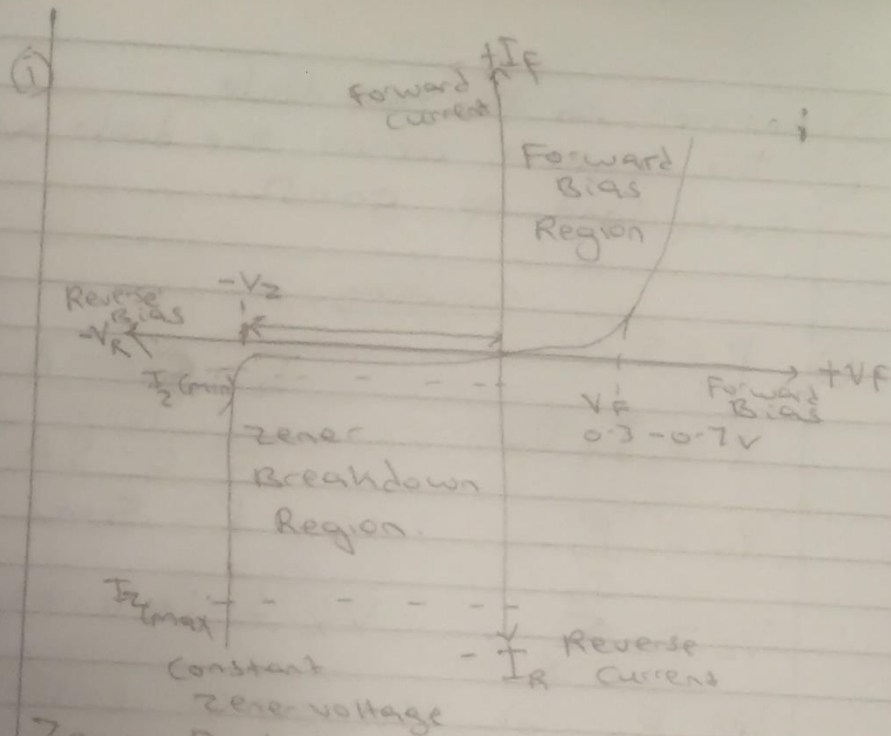 (i)
+IF
Forward
Current
Forward
Bias
Region
-VZ
Reverse
Bias
-VR
IZ(min)
+VF
Forward
Bias
VF
0.3-0.7V
Zener
Breakdown
Region.
IZ(max)
-IR
Reverse
Current
Constant
Zener voltage